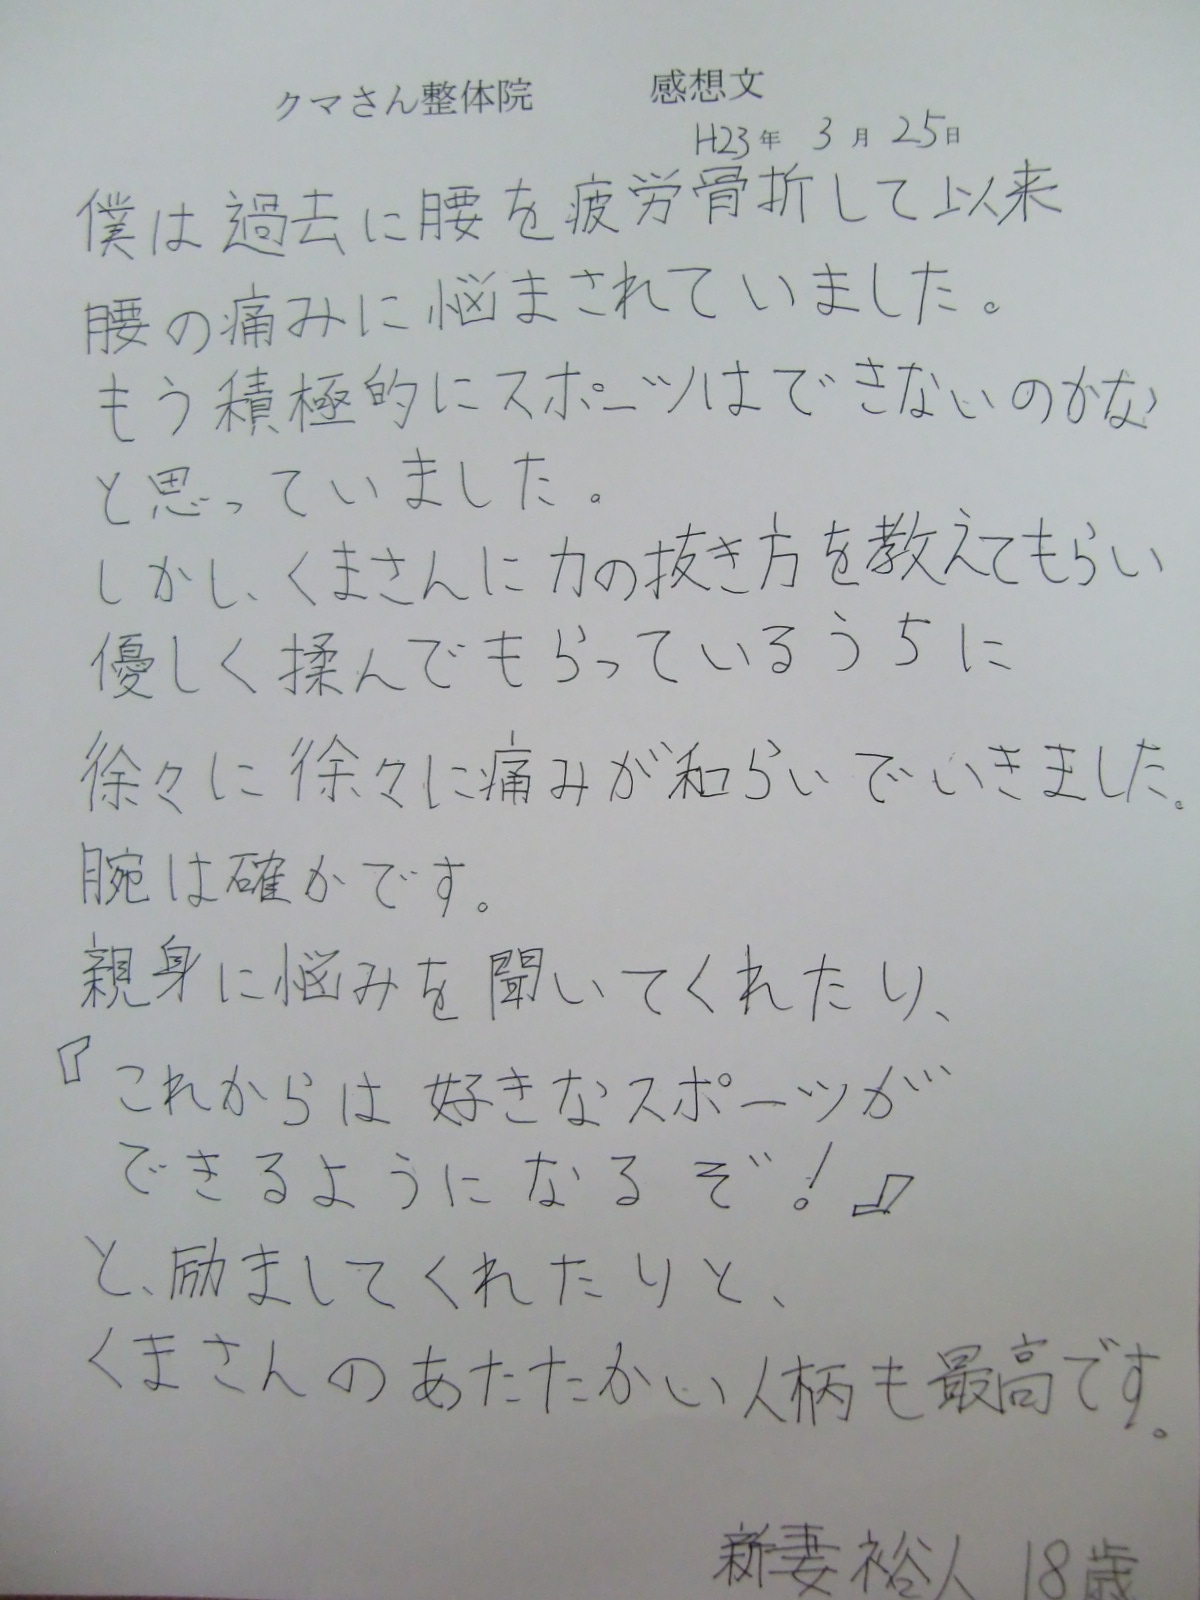 クマさん整体院 感想文
H23年 3月 25日
僕は過去に腰を疲労骨折して以来
腰の痛みに悩まされていました。
もう積極的にスポーツはできないのかな
と思っていました。
しかし、くまさんに力の抜き方を教えてもらい
優しく揉んでもらっているうちに
徐々に徐々に痛みが和らいでいきました。
腕は確かです。
親身に悩みを聞いてくれたり、
『これからは好きなスポーツが
できるようになるぞ!』
と、励ましてくれたりと、
くまさんのあたたかい人柄も最高です。
新妻裕人 18歳